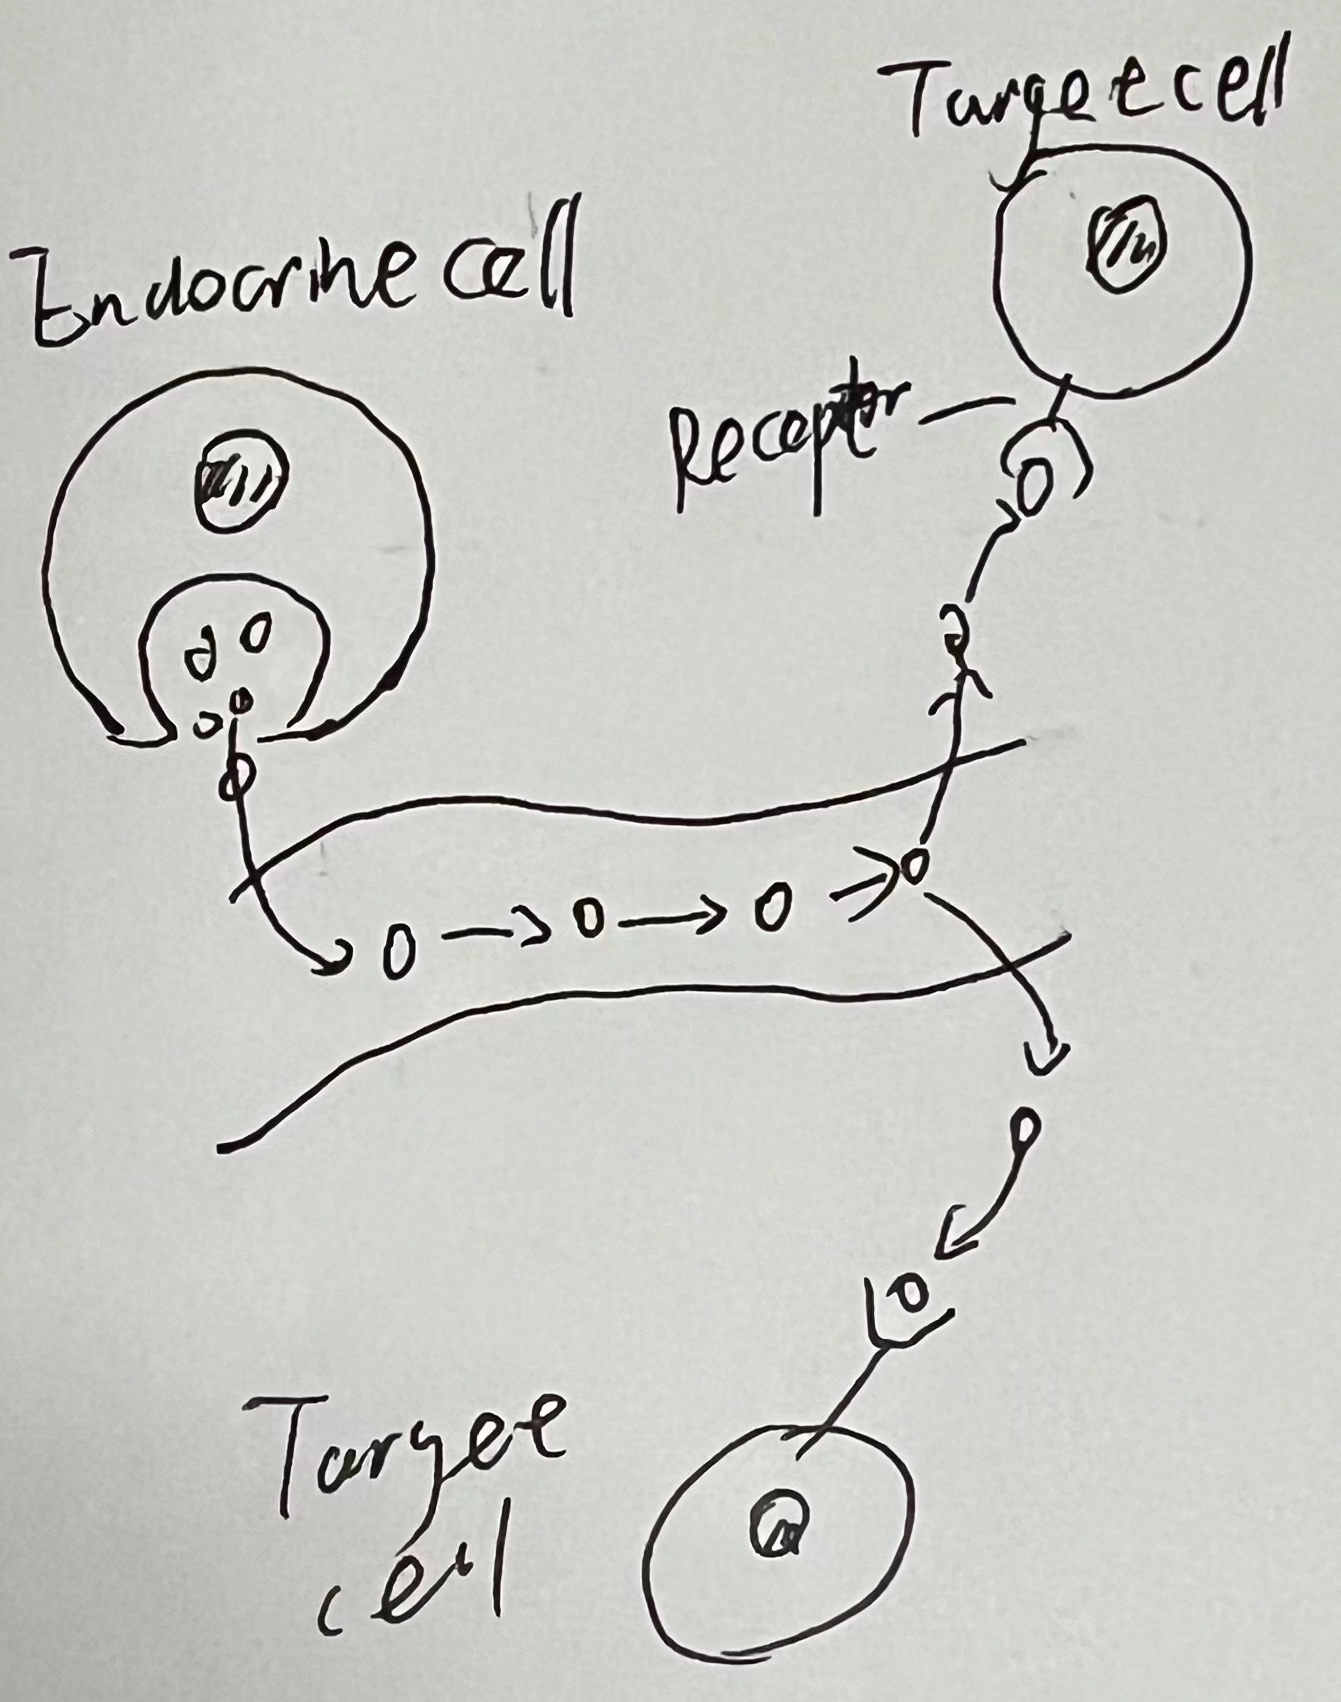 Target cell
Endocrine cell
Receptor
Target
cell